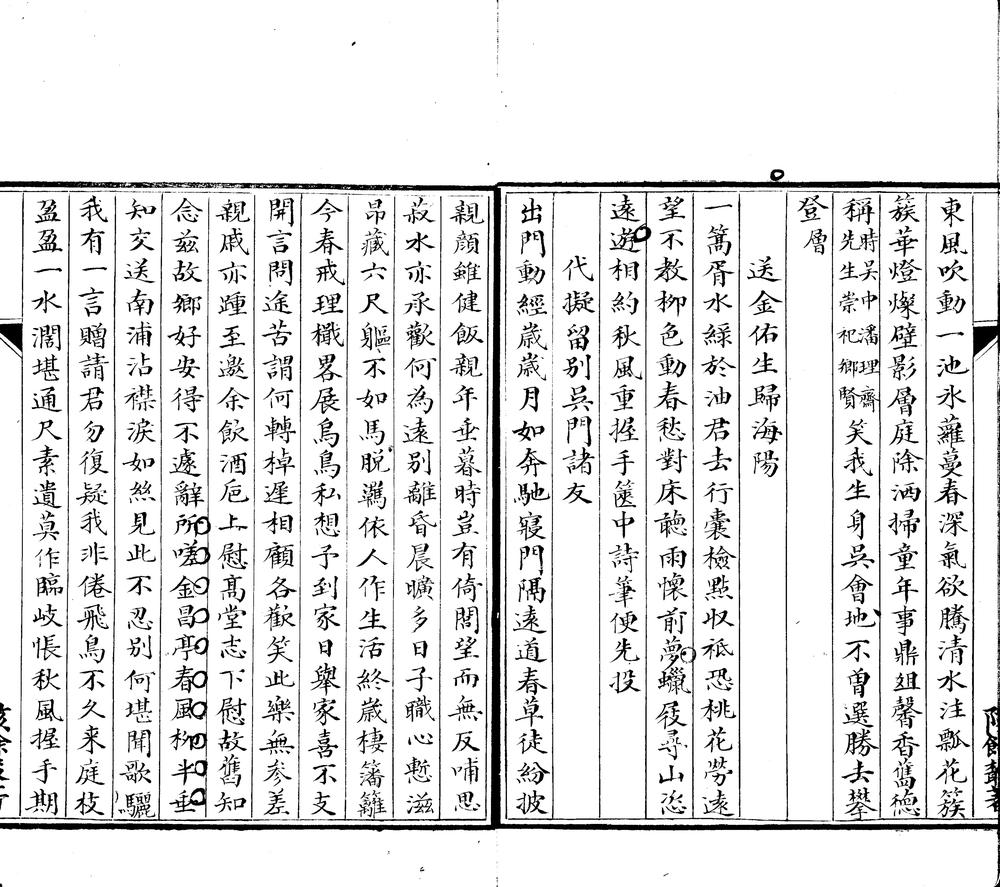 東風吹動一池氷蘿蔓春深氣欲騰清水注瓢花簇
簇華燈燦壁影層庭除洒掃童年事鼎俎馨香舊德
稱時吳中潘理齋先生崇祀鄉賢笑我生身吳會地不曽選勝去攀
登層
送金佑生歸海陽
一篙胥水綠於油君去行囊檢點収祗恐桃花勞遠
望不教柳色動春愁對床聽雨懷前夢蠟屐尋山恣
遠遊相約秋風重握手篋中詩筆便先投
代擬留別吳門諸友
出門動經歲歲月如奔馳寢門隔遠道春草徒紛披
親顔雖健飯親年垂暮時豈有倚閭望而無反哺思
菽水亦承歡何為遠別離昏晨曠多日子職心慙滋
昂藏六尺軀不如馬脫羈依人作生活終歲棲籓籬
今春戒理檝畧展烏鳥私想予到家日舉家喜不支
開言問途苦謂何轉棹遲相顧各歡笑此樂無参差
親戚亦踵至邀余飲酒巵上慰髙堂志下慰故舊知
念兹故鄉好安得不遽辭所嗟金昌亭春風柳半垂
知交送南浦沾襟淚如絲見此不忍別何堪聞歌驪
我有一言贈請君勿復疑我非倦飛鳥不久来庭枝
盈盈一水濶堪通尺素遺莫作臨岐悵秋風握手期